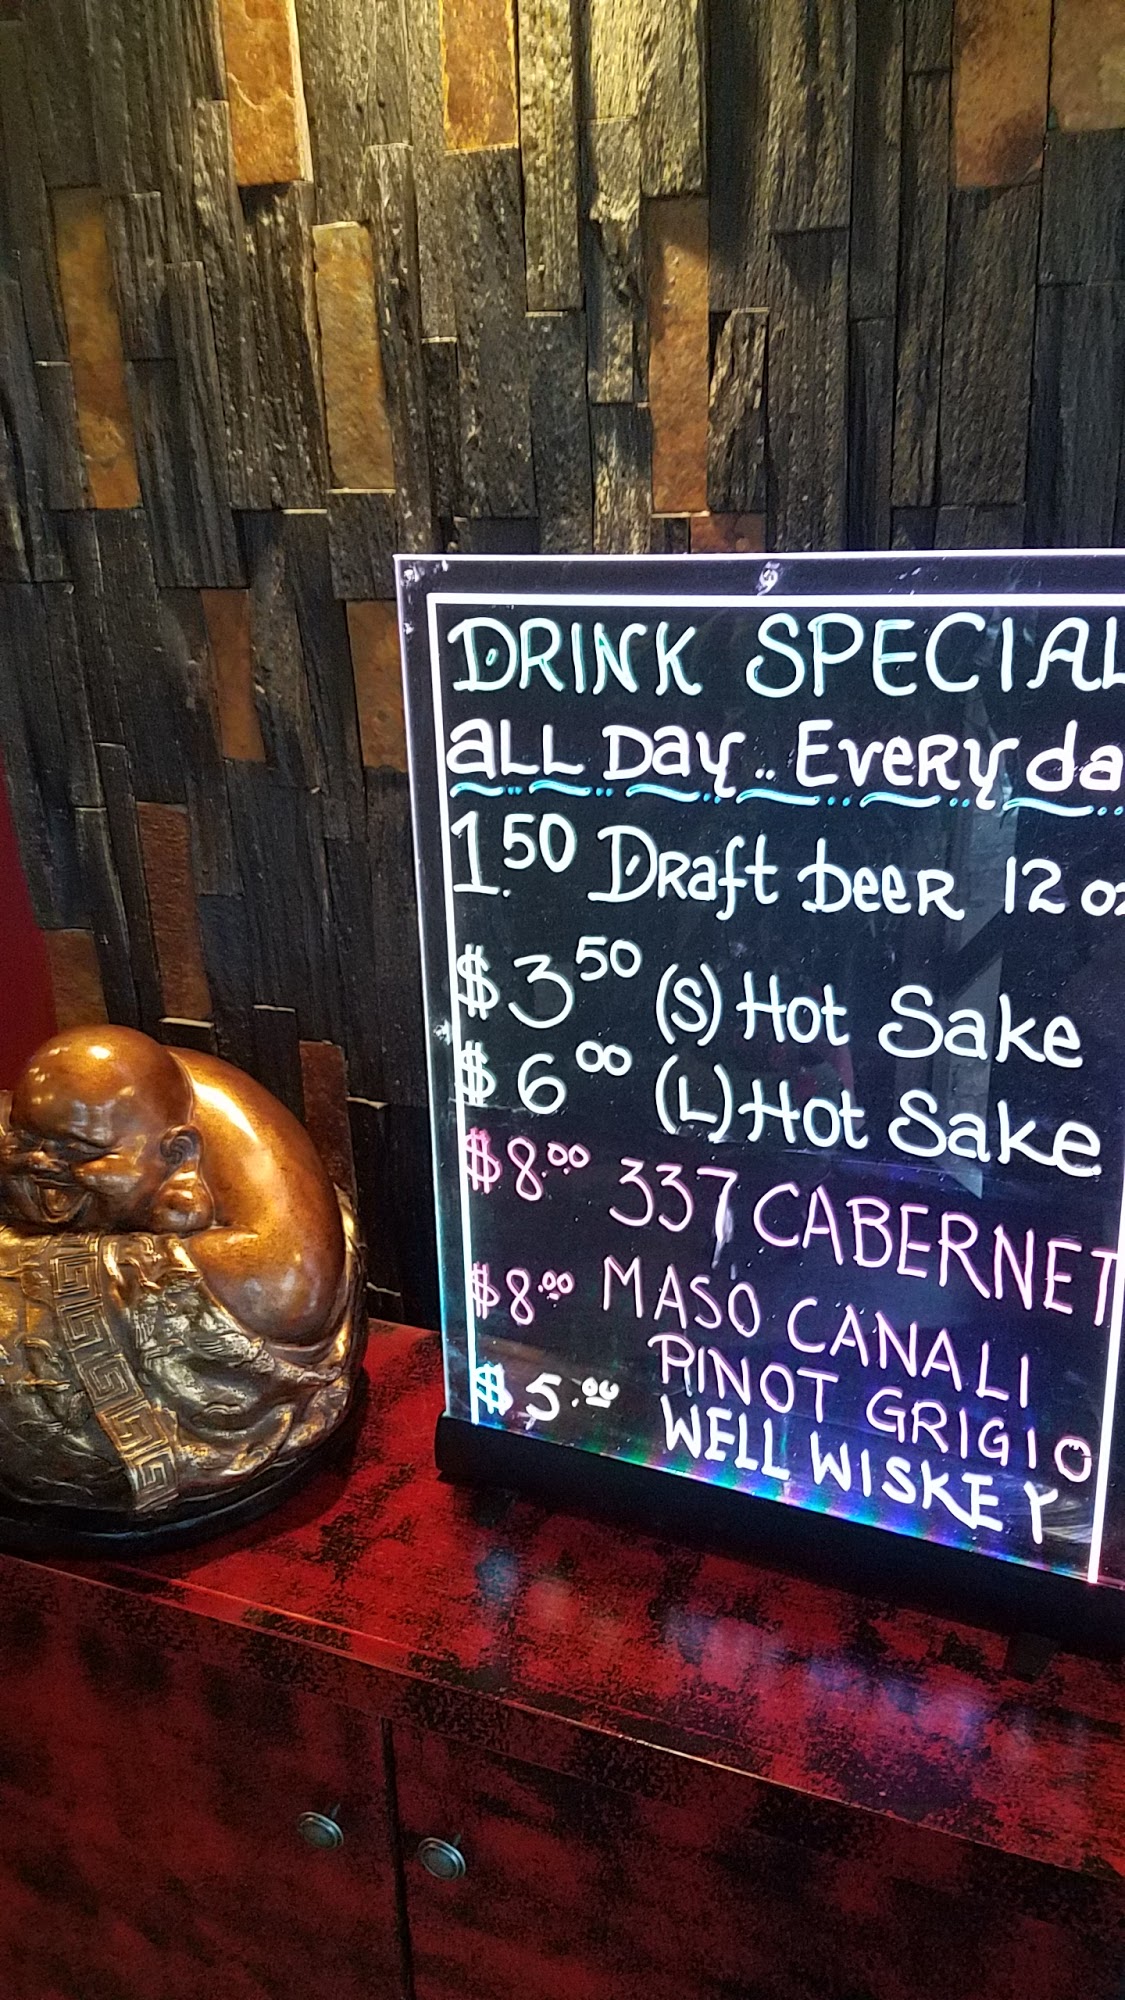 DRINK SPECIAL
aLL Day.. EveRy da
1.50 DRaft beeR 12 oz
$3.50 (S) Hot Sake
$6.00 (L) Hot Sake
$8.00 337 CABERNET
$8.00 MASO CANALI
PINOT GRIGIO
$5.00 WELL WISKEY